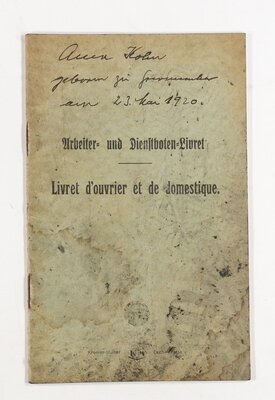 Anna Kohn
geboren zu
am 23. Mai 1920.
Arbeiter- und Dienstboten-Livret
Livret d'ouvrier et de domestique.